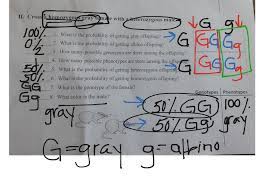 II. Cross a homozygous gray female with a heterozygous male
100% 1. What is the probability of getting gray offspring?
0% 2. What is the probability of getting albino offspring?
3. How many possible genotypes are there among the offspring?
4. How many possible phenotypes are there among the offspring?
50% 5. What is the probability of getting homozygous offspring?
50% 6. What is the probability of getting heterozygous offspring?
GG 7. What is the genotype of the female?
Gg 8. What color is the male?
gray
G g
G GG Gg
G GG Gg
Genotypes Phenotypes
50% GG 100%
50% Gg gray
G=gray g=albino